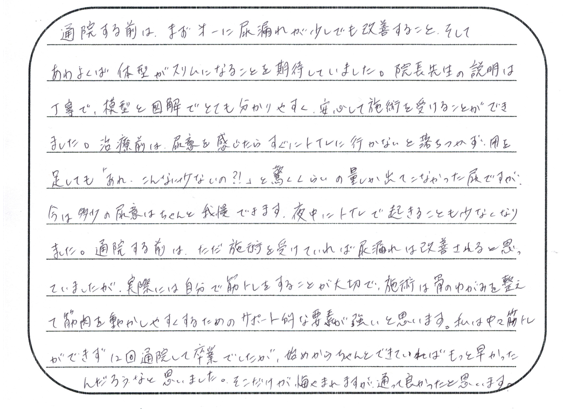 通院する前は、まず第一に尿漏れが少しでも改善すること、そして
あわよくば体型がスリムになることを期待していました。院長先生の説明は
丁寧で、模型と図解でとても分かりやすく、安心して施術を受けることができ
ました。治療前は、尿意を感じたらすぐにトイレに行かないと落ちつかず、用を
足しても「あれ、こんなに少ないの?!」と驚くくらいの量しか出てこなかった尿ですが、
今は多少の尿意はちゃんと我慢できます。夜中にトイレで起きることも少なくなり
ました。通院する前は、ただ施術を受けていれば尿漏れは改善されると思っ
ていましたが、実際には自分で筋トレをすることが大切で、施術は骨のゆがみを整え
て筋肉を動かしやすくするためのサポート的な要素が強いと思います。私は中々筋トレ
ができずに12回通院して卒業でしたが、始めからちゃんとできていればもっと早かった
んだろうなと思いました。そこだけが悔くまれますが、通って良かったと思います。